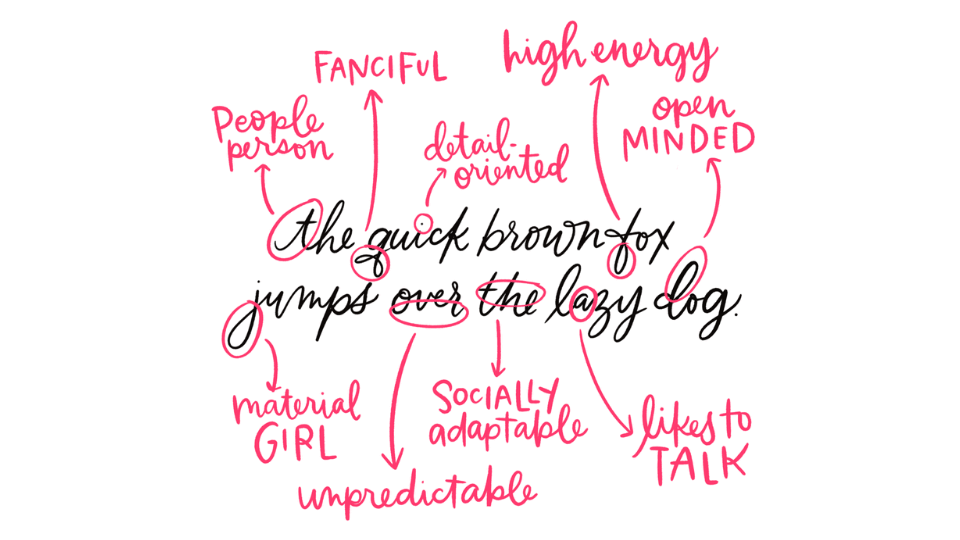 FANCIFUL
high energy
People
person
detail-
oriented
open
MINDED
the quick brown fox
jumps over the lazy dog.
material
GIRL
SOCIALLY
adaptable
likes to
TALK
unpredictable